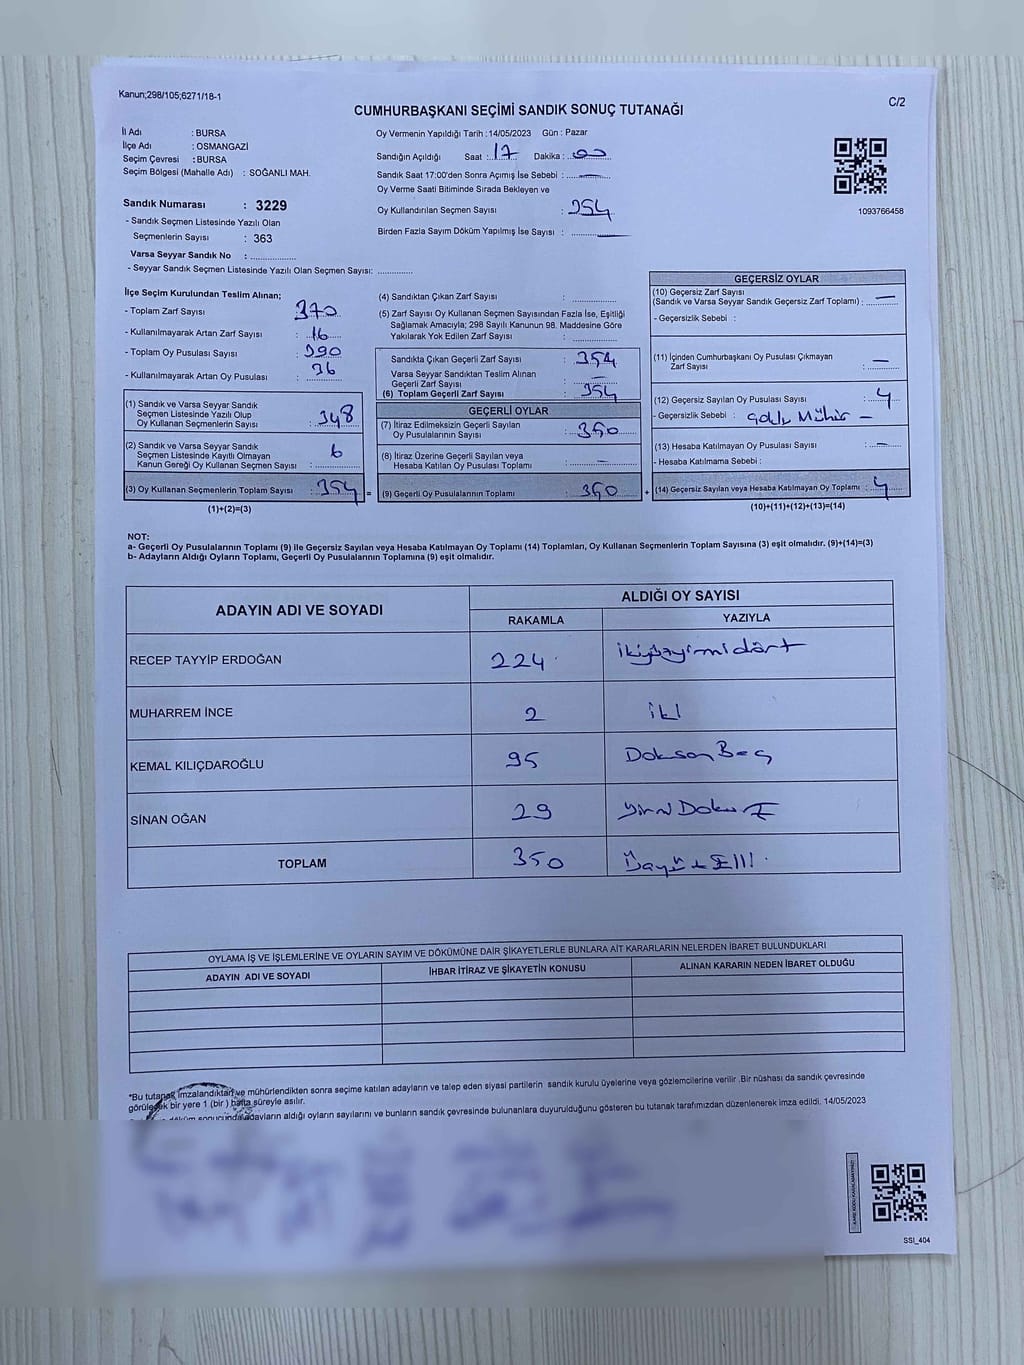 Kanun;298/105;6271/18-1
C/2
CUMHURBAŞKANI SEÇİMİ SANDIK SONUÇ TUTANAĞI
İl Adı : BURSA
İlçe Adı : OSMANGAZİ
Seçim Çevresi : BURSA
Seçim Bölgesi (Mahalle Adı) : SOĞANLI MAH.
Sandık Numarası : 3229
- Sandık Seçmen Listesinde Yazılı Olan
Seçmenlerin Sayısı : 363
Varsa Seyyar Sandık No : ..............
- Seyyar Sandık Seçmen Listesinde Yazılı Olan Seçmen Sayısı: ............
Oy Vermenin Yapıldığı Tarih : 14/05/2023 Gün : Pazar
Sandığın Açıldığı Saat : 17 Dakika : 00
Sandık Saat 17:00'den Sonra Açımış İse Sebebi : —
Oy Verme Saati Bitiminde Sırada Bekleyen ve
Oy Kullandırılan Seçmen Sayısı : 354
Birden Fazla Sayım Döküm Yapılmış İse Sayısı : —
1093766458
İlçe Seçim Kurulundan Teslim Alınan;
- Toplam Zarf Sayısı : 370
- Kullanılmayarak Artan Zarf Sayısı : 16
- Toplam Oy Pusulası Sayısı : 390
- Kullanılmayarak Artan Oy Pusulası : 36
(1) Sandık ve Varsa Seyyar Sandık
Seçmen Listesinde Yazılı Olup
Oy Kullanan Seçmenlerin Sayısı : 348
(2) Sandık ve Varsa Seyyar Sandık
Seçmen Listesinde Kayıtlı Olmayan
Kanun Gereği Oy Kullanan Seçmen Sayısı : 6
(3) Oy Kullanan Seçmenlerin Toplam Sayısı : 354 =
(1)+(2)=(3)
(4) Sandıktan Çıkan Zarf Sayısı : ..............
(5) Zarf Sayısı Oy Kullanan Seçmen Sayısından Fazla İse, Eşitliği
Sağlamak Amacıyla; 298 Sayılı Kanunun 98. Maddesine Göre
Yakılarak Yok Edilen Zarf Sayısı : ..............
Sandıkta Çıkan Geçerli Zarf Sayısı : 354
Varsa Seyyar Sandıktan Teslim Alınan
Geçerli Zarf Sayısı : —
(6) Toplam Geçerli Zarf Sayısı : 354
GEÇERLİ OYLAR
(7) İtiraz Edilmeksizin Geçerli Sayılan
Oy Pusulalarının Sayısı : 350
(8) İtiraz Üzerine Geçerli Sayılan veya
Hesaba Katılan Oy Pusulası Toplamı : —
(9) Geçerli Oy Pusulalarının Toplamı : 350 +
GEÇERSİZ OYLAR
(10) Geçersiz Zarf Sayısı
(Sandık ve Varsa Seyyar Sandık Geçersiz Zarf Toplamı) : —
- Geçersizlik Sebebi :
(11) İçinden Cumhurbaşkanı Oy Pusulası Çıkmayan
Zarf Sayısı : —
(12) Geçersiz Sayılan Oy Pusulası Sayısı : 4
- Geçersizlik Sebebi : Mühür —
(13) Hesaba Katılmayan Oy Pusulası Sayısı : —
- Hesaba Katılmama Sebebi :
(14) Geçersiz Sayılan veya Hesaba Katılmayan Oy Toplamı : 4
(10)+(11)+(12)+(13)=(14)
NOT:
a- Geçerli Oy Pusulalarının Toplamı (9) ile Geçersiz Sayılan veya Hesaba Katılmayan Oy Toplamı (14) Toplamları, Oy Kullanan Seçmenlerin Toplam Sayısına (3) eşit olmalıdır. (9)+(14)=(3)
b- Adayların Aldığı Oyların Toplamı, Geçerli Oy Pusulalarının Toplamına (9) eşit olmalıdır.
ADAYIN ADI VE SOYADI ALDIĞI OY SAYISI
RAKAMLA YAZIYLA
RECEP TAYYİP ERDOĞAN 224 ikiyüzyirmidört
MUHARREM İNCE 2 iki
KEMAL KILIÇDAROĞLU 95 Doksan Beş
SİNAN OĞAN 29 Yirmi Dokuz
TOPLAM 350 Üçyüz Elli
OYLAMA İŞ VE İŞLEMLERİNE VE OYLARIN SAYIM VE DÖKÜMÜNE DAİR ŞİKAYETLERLE BUNLARA AİT KARARLARIN NELERDEN İBARET BULUNDUKLARI
ADAYIN ADI VE SOYADI İHBAR İTİRAZ VE ŞİKAYETİN KONUSU ALINAN KARARIN NEDEN İBARET OLDUĞU
*Bu tutanak imzalandıktan ve mühürlendikten sonra seçime katılan adayların ve talep eden siyasi partilerin sandık kurulu üyelerine veya gözlemcilerine verilir .Bir nüshası da sandık çevresinde
görülecek bir yere 1 (bir ) hafta süreyle asılır.
döküm sonucunda adayların aldığı oyların sayılarını ve bunların sandık çevresinde bulunanlara duyurulduğunu gösteren bu tutanak tarafımızdan düzenlenerek imza edildi. 14/05/2023
SSI_404